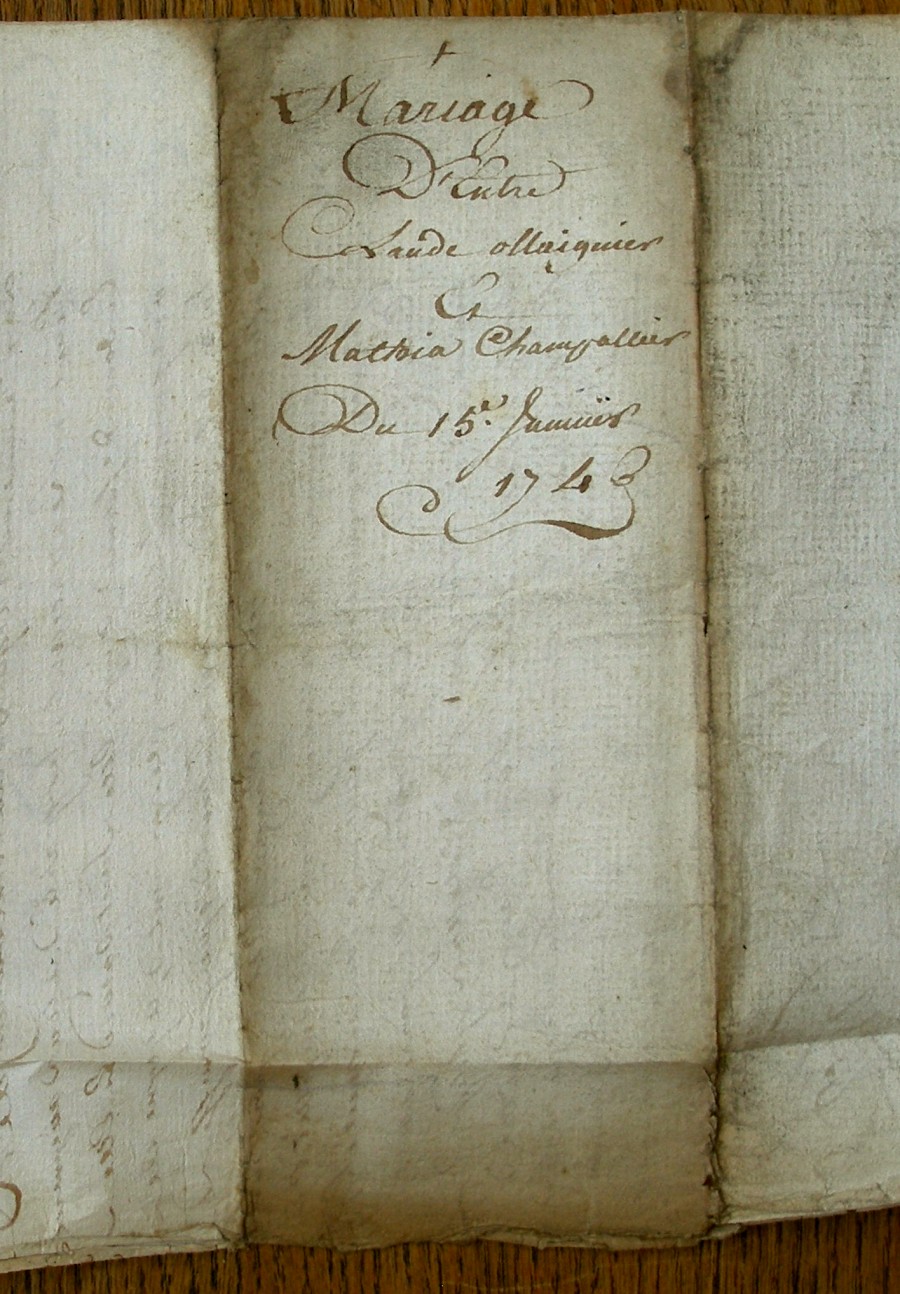 Mariage
D'Entre
Claude ollaignier
Et
Mathia Champallier
Du 15e. Januiër
1743